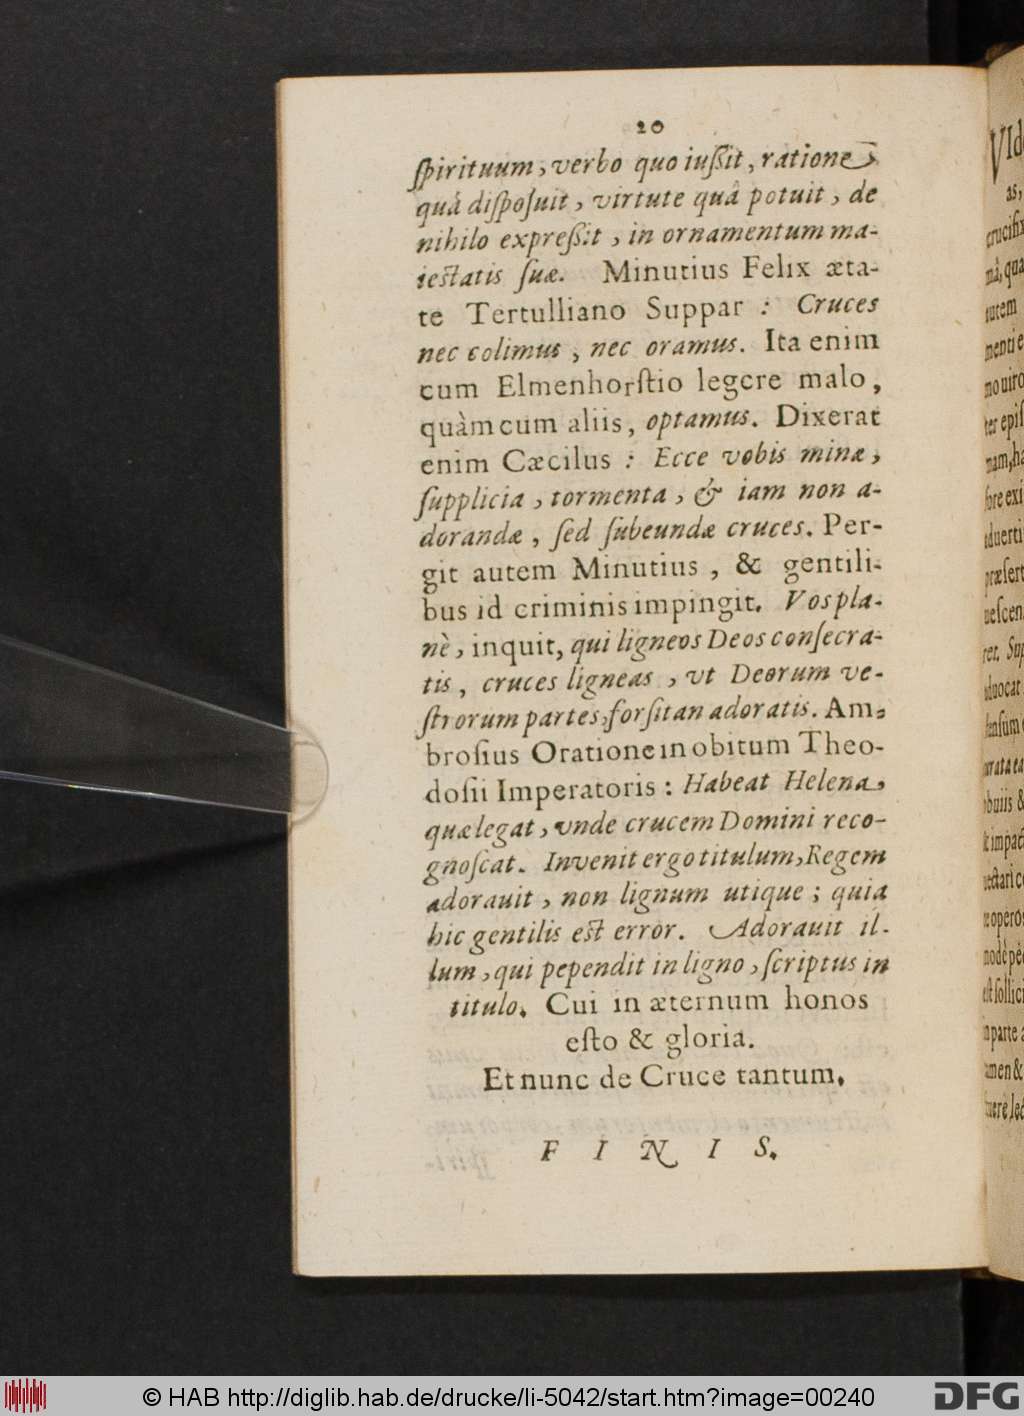 20
ſpirituum, verbo quo iuſſit, ratione
quâ diſpoſuit, virtute quâ potuit, de
nihilo expreſſit, in ornamentum ma-
ieſtatis ſuæ. Minutius Felix æta-
te Tertulliano Suppar : Cruces
nec colimus, nec oramus. Ita enim
cum Elmenhorſtio legere malo,
quàm cum aliis, optamus. Dixerat
enim Cæcilus : Ecce vobis minæ,
ſupplicia, tormenta, & iam non a-
dorandæ, ſed ſubeundæ cruces. Per-
git autem Minutius, & gentili-
bus id criminis impingit. Vos pla-
nè, inquit, qui ligneos Deos conſecra-
tis, cruces ligneas, vt Deorum ve-
ſtrorum partes, forſitan adoratis. Am-
broſius Oratione in obitum Theo-
doſii Imperatoris : Habeat Helena,
quæ legat, vnde crucem Domini reco-
gnoſcat. Invenit ergo titulum, Regem
adorauit, non lignum utique ; quia
hic gentilis eſt error. Adorauit il-
lum, qui pependit in ligno, ſcriptus in
titulo. Cui in æternum honos
eſto & gloria.
Et nunc de Cruce tantum.
F I N I S.
VId
as,
crucifix
mâ, qua
autem
menti e
mo uiro
ter epiſ
nam, ha
fore exi
aduerti
præſert
ret. Sup
aduocat
obuiis &
eſt ſollici
in parte a
© HAB http://diglib.hab.de/drucke/li-5042/start.htm?image=00240
DFG